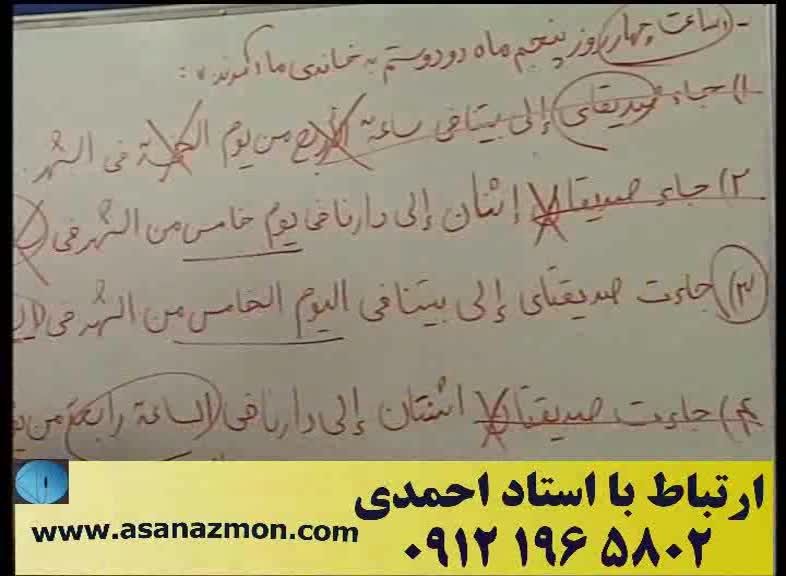 - «ساعت چهار روز پنجم ماه دو دوستم به خانه‌ی ما آمدند»:
۱) جاء صدیقای إلی بیتنا فی ساعة أربع من یوم الخمسة فی الشهر.
۲) جاء صدیقا إثنان إلی دارنا فی یوم خامس من الشهر فی
۳) جاءت صدیقتای إلی بیتنا فی الیوم الخامس من الشهر فی
۴) جاءت صدیقتا اثنتان إلی دارنا فی الساعة رابعة من
ارتباط با استاد احمدی
www.asanazmon.com
۰۹۱۲ ۱۹۶ ۵۸۰۲